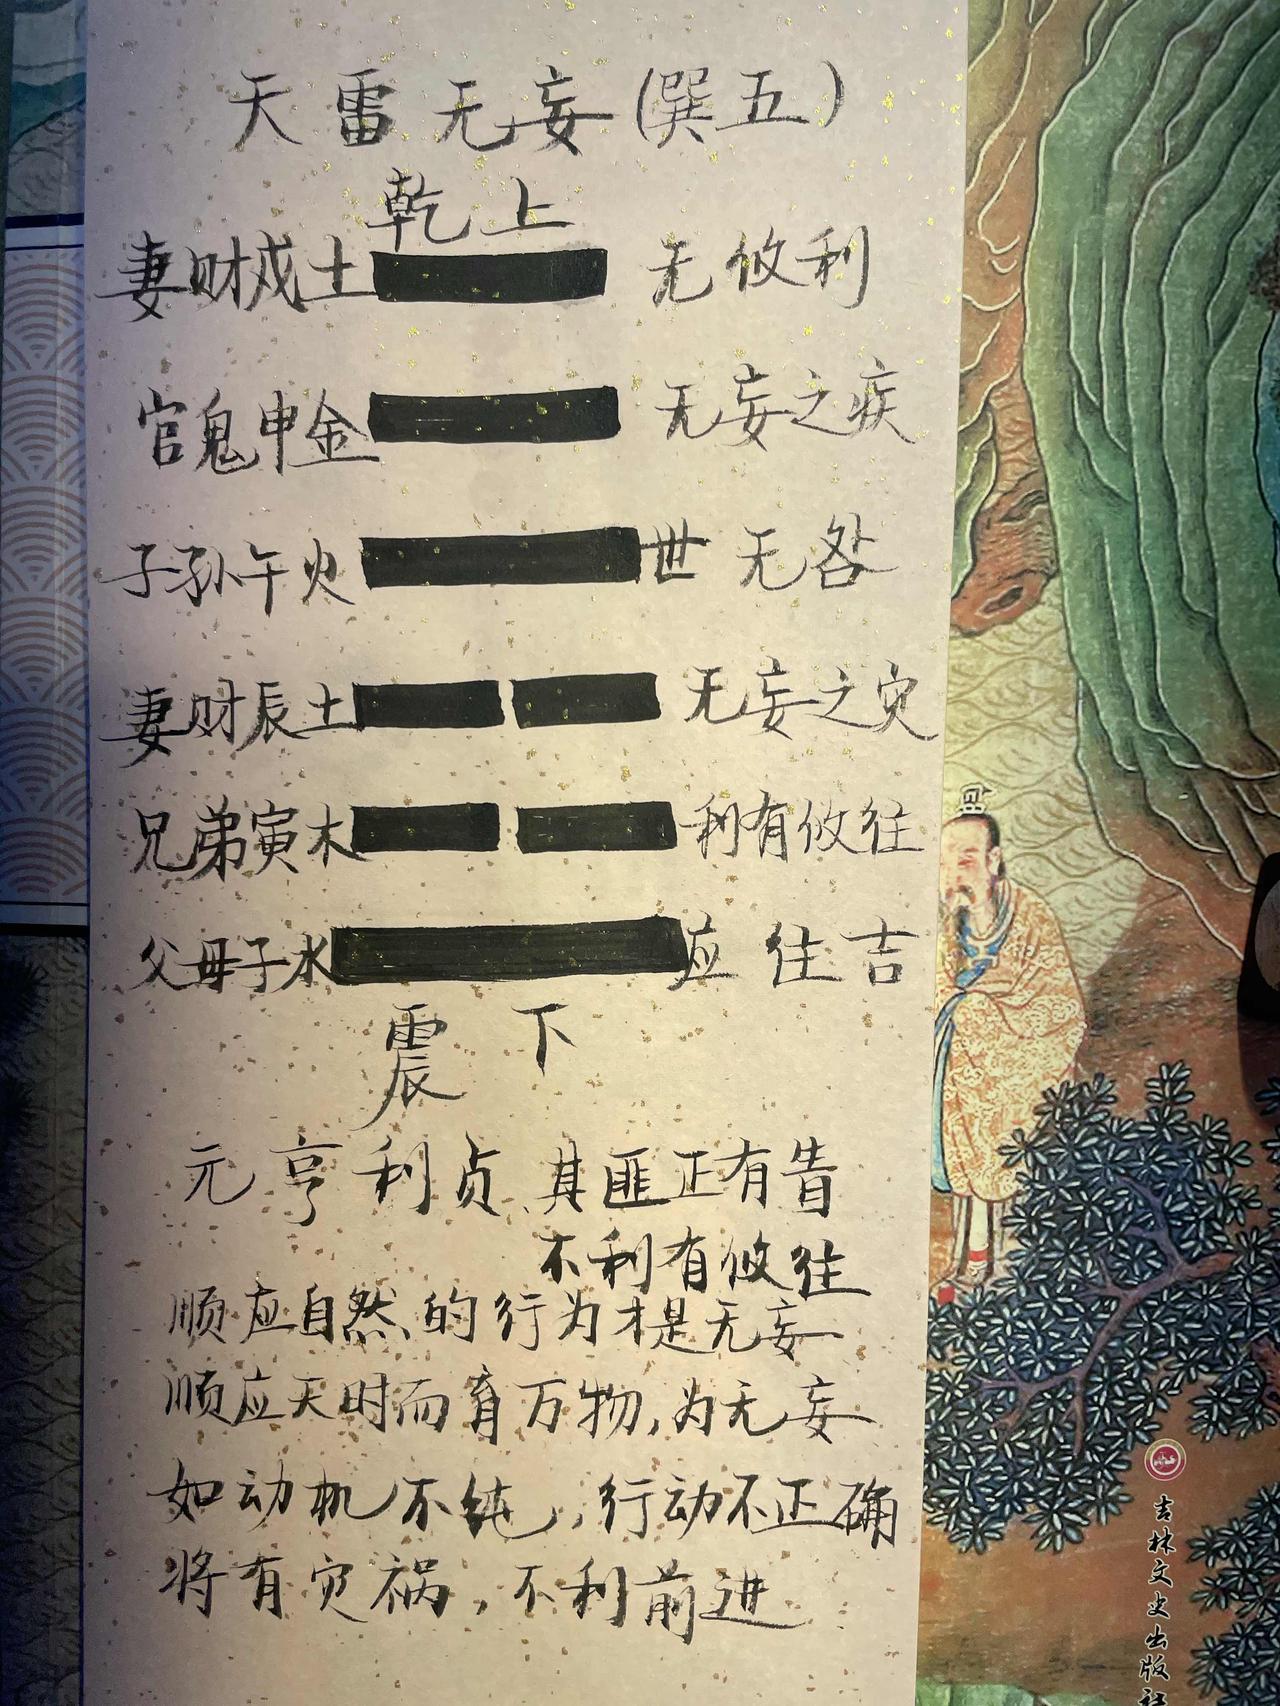 天雷无妄(巽五)
乾上
妻财戌土 无攸利
官鬼申金 无妄之疾
子孙午火 世 无咎
妻财辰土 无妄之灾
兄弟寅木 利有攸往
父母子水 应 往吉
震下
元亨利贞 其匪正有眚
不利有攸往
顺应自然的行为才是无妄
顺应天时而育万物,为无妄
如动机不纯,行动不正确
将有灾祸,不利前进
吉林文史出版社